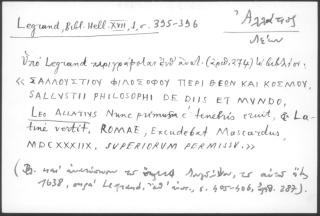 Legrand, Bibl. Hell. XVII, 1, σ. 395-396
Ἀλλάτιος
Λέων
Ὑπὸ Legrand περιγράφεται (ἀρθ. 274) τὸ βιβλίον:
« ΣΑΛΛΟΥΣΤΙΟΥ ΦΙΛΟΣΟΦΟΥ ΠΕΡΙ ΘΕΩΝ ΚΑΙ ΚΟΣΜΟΥ.
SALLVSTII PHILOSOPHI DE DIIS ET MVNDO,
LEO ALLATIVS Nunc primus è tenebris eruit, & La-
tinè vertit. ROMAE, Excudebat Mascardus,
MDCXXXIIX, SUPERIORUM PERMISSV. »
(Β. καὶ τοῦ αὐτοῦ ἔτ.
1638, παρὰ Legrand, σ. 405-406, ἀρθ. 287).